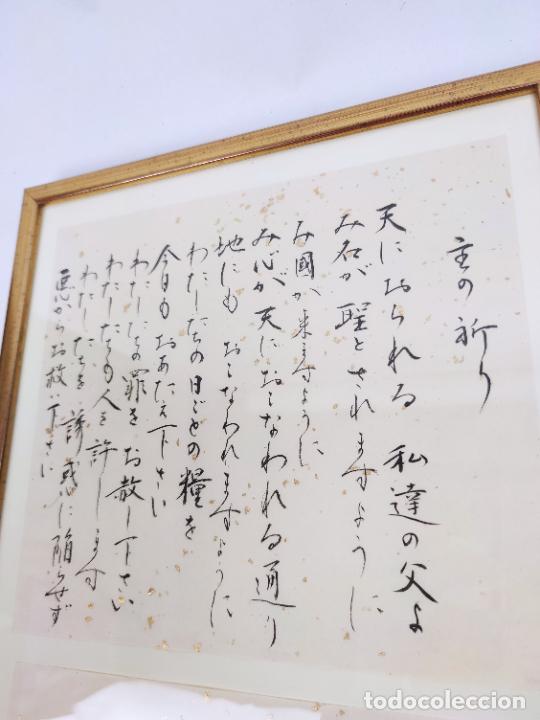 主の祈り
天におられる 私達の父よ
み名が 聖とされ ますように
み國が 来ますように
み心が 天におこなわれる通り
地にも おこなわれますように
わたしたちの 日ごとの 糧を
今日も おあたえ下さい
わたしたちの罪を お赦し下さい
わたしたちも 人を 許します
わたしたちを 誘惑に 陥らせず
悪からお救い下さい
todocoleccion